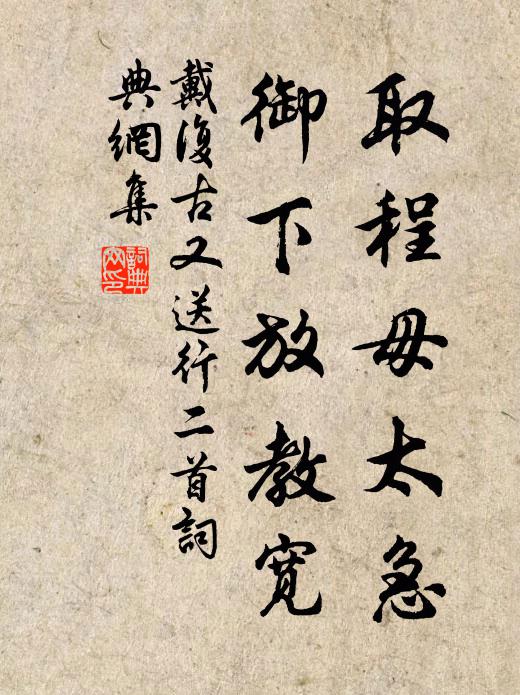 取程毋太急
御下放教寬
戴復古又送行二首詞
典網集
詞典網印